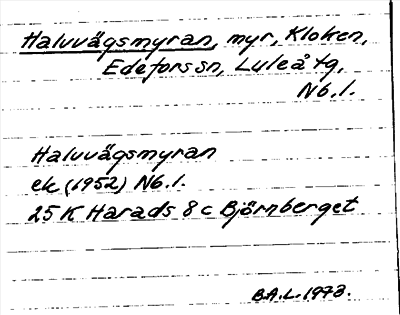 Haluvägsmyran, myr, Kloken,
Edeforssn, Luleå tg,
Nb.l.
Haluvägsmyran
ek (1952) Nb.l.
25 K Harads 8 c Björnberget
B.A.L. 1973.